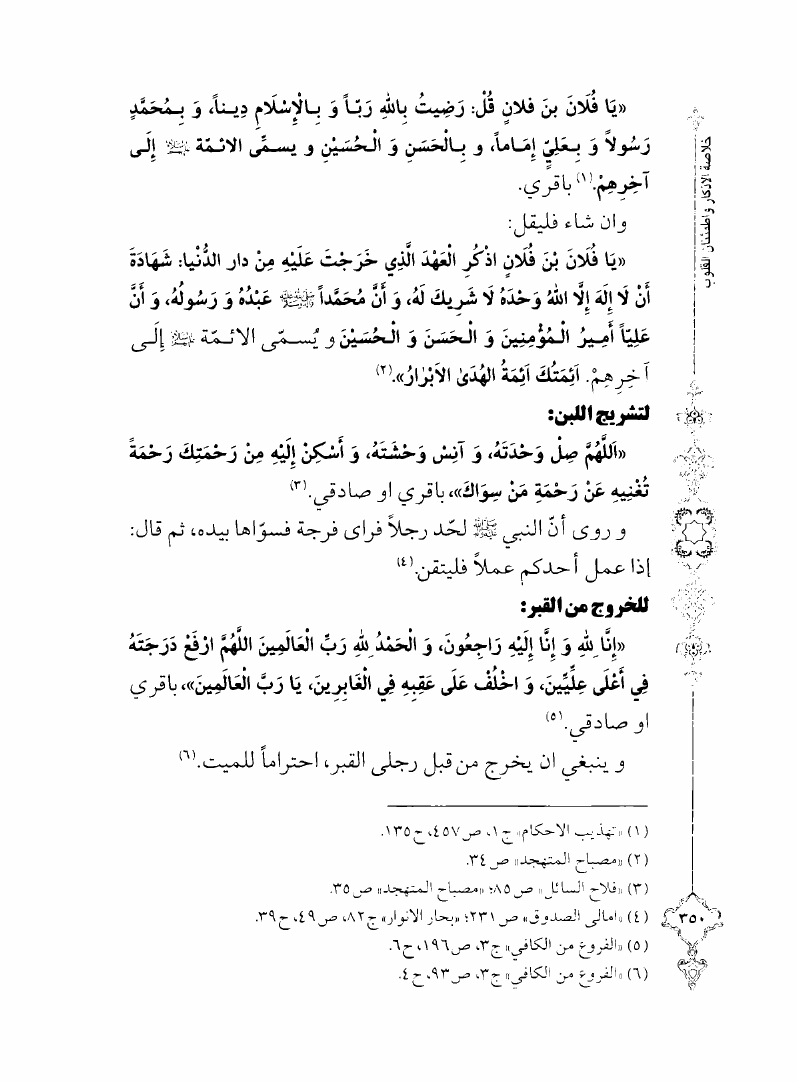 «يَا فُلَانَ بنَ فلانٍ قُلْ: رَضِيتُ بِاللهِ رَبّاً وَ بِالْإِسْلَامِ دِيناً، وَ بِمُحَمَّدٍ
رَسُولاً وَ بِعَلِيٍّ إِمَاماً، و بِالْحَسَنِ وَ الْحُسَيْنِ و يسمَّى الائمّة عليهم السلام إِلَى
آخِرِهِمْ.(١) باقري.
وان شاء فليقل:
«يَا فُلَانَ بْنَ فُلَانٍ اذْكُرِ الْعَهْدَ الَّذِي خَرَجْتَ عَلَيْهِ مِنْ دار الدُّنْيا: شَهَادَةَ
أَنْ لَا إِلَهَ إِلَّا اللهُ وَحْدَهُ لَا شَرِيكَ لَهُ، وَ أَنَّ مُحَمَّداً ﷺ عَبْدُهُ وَ رَسُولُهُ، وَ أَنَّ
عَلِيّاً أَمِيرُ الْمُؤْمِنِينَ وَ الْحَسَنَ وَ الْحُسَيْنَ و يُسمّى الائمّة عليهم السلام إِلَى
آخِرِهِمْ. اَئِمَتُكَ اَئِمَةُ الهُدَىٰ الاَبْرَارُ».(٢)
لتشريج اللبن:
«اَللَّهُمَّ صِلْ وَحْدَتَهُ، وَ آنِسْ وَحْشَتَهُ، وَ أَسْكِنْ إِلَيْهِ مِنْ رَحْمَتِكَ رَحْمَةً
تُغْنِيهِ عَنْ رَحْمَةِ مَنْ سِوَاكَ»، باقري او صادقي.(٣)
و روى أنّ النبي ﷺ لحّد رجلاً فراى فرجة فسوّاها بيده، ثم قال:
إذا عمل أحدكم عملاً فليتقن.(٤)
للخروج من القبر:
«إِنَّا لِلهِ وَ إِنَّا إِلَيْهِ رَاجِعُونَ، وَ الْحَمْدُ لِلهِ رَبِّ الْعَالَمِينَ اللَّهُمَّ ارْفَعْ دَرَجَتَهُ
فِي أَعْلَى عِلِّيِّينَ، وَ اخْلُفْ عَلَى عَقِبِهِ فِي الْغَابِرِينَ، يَا رَبَّ الْعَالَمِينَ»، باقري
او صادقي.(٥)
و ينبغي ان يخرج من قبل رجلى القبر، احتراماً للميت.(٦)
(١) «تهذيب الاحكام» ج١، ص٤٥٧، ح١٣٥.
(٢) «مصباح المتهجد» ص٣٤.
(٣) «فلاح السائل» ص٨٥؛ «مصباح المتهجد» ص٣٥.
(٤) «امالى الصدوق» ص٢٣١؛ «بحار الانوار» ج٨٢، ص٤٩، ح٣٩.
(٥) «الفروع من الكافي» ج٣، ص١٩٦، ح٦.
(٦) «الفروع من الكافي» ج٣، ص٩٣، ح٤.
خلاصة الاذكار و اطمئنان القلوب
٣٥٠